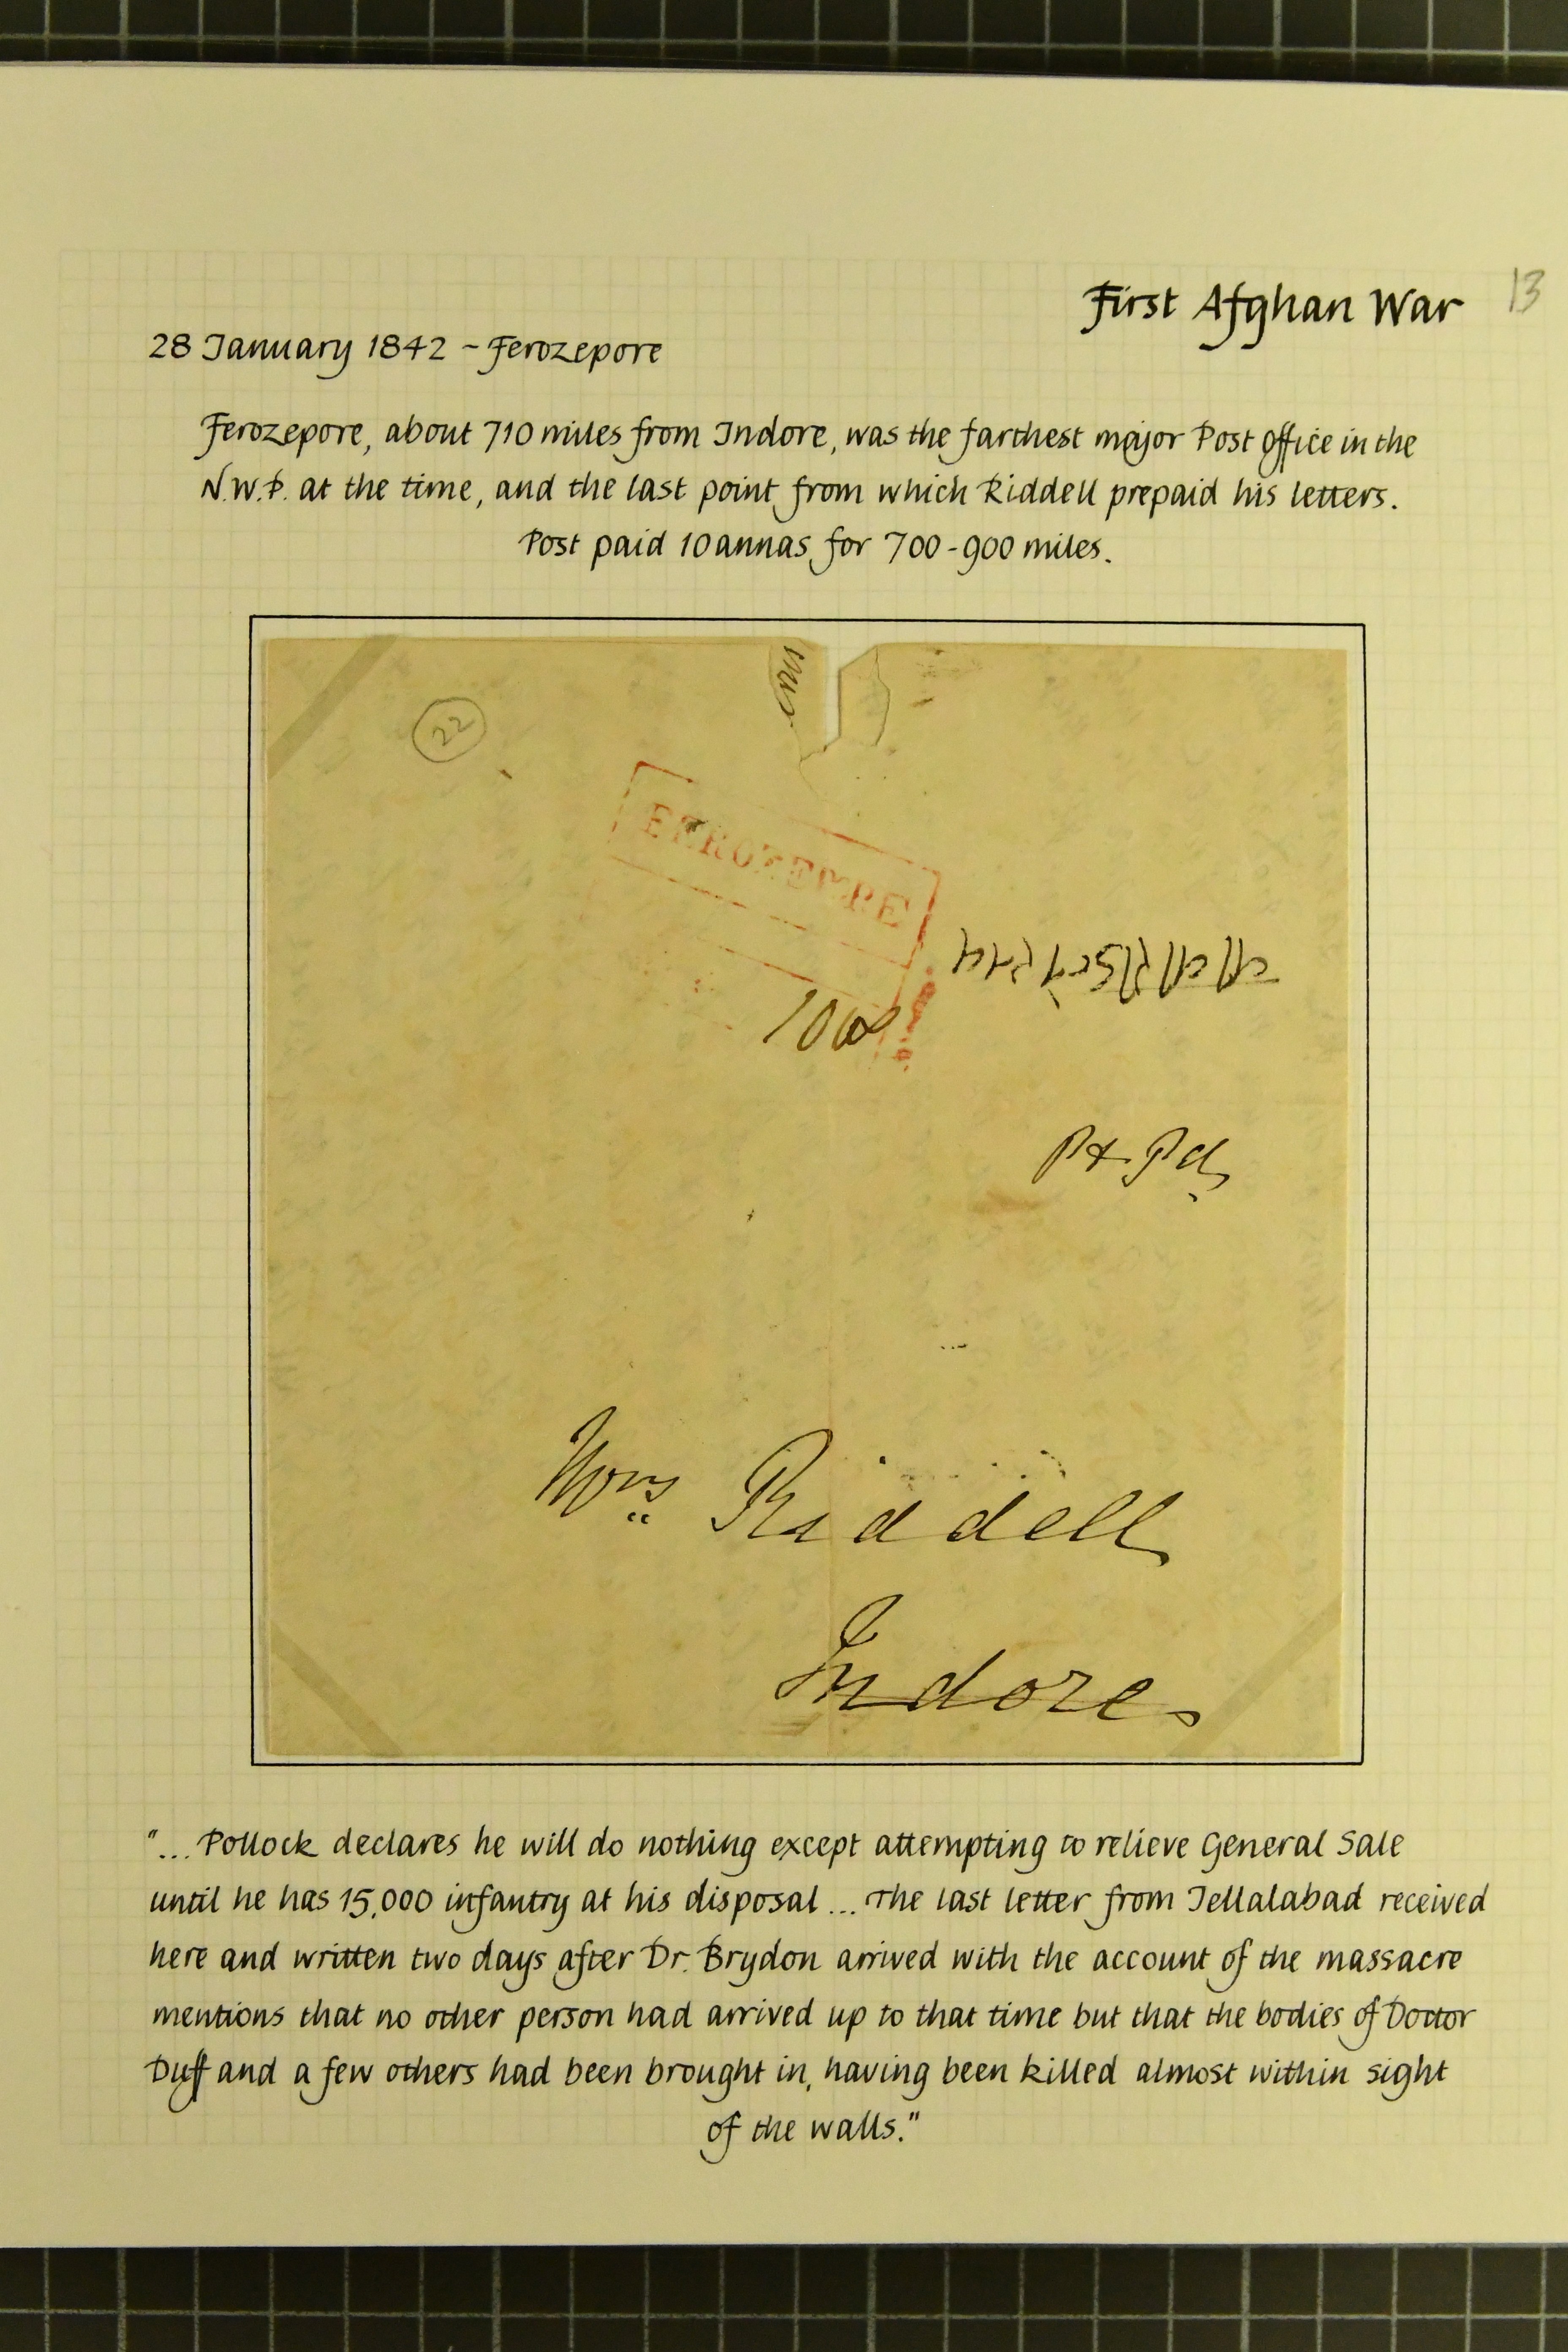 First Afghan War
13
28 January 1842 ~ Ferozepore
Ferozepore, about 710 miles from Indore, was the farthest major Post Office in the
N.W.P. at the time, and the last point from which Riddell prepaid his letters.
Post paid 10 annas for 700-900 miles.
22
FEROZEPRE
Pt. Pd
Mrs Riddell
Indore
"... Pollock declares he will do nothing except attempting to relieve General Sale
until he has 15,000 infantry at his disposal ... The last letter from Jellalabad received
here and written two days after Dr. Brydon arrived with the account of the massacre
mentions that no other person had arrived up to that time but that the bodies of Doctor
Duff and a few others had been brought in, having been killed almost within sight
of the walls."